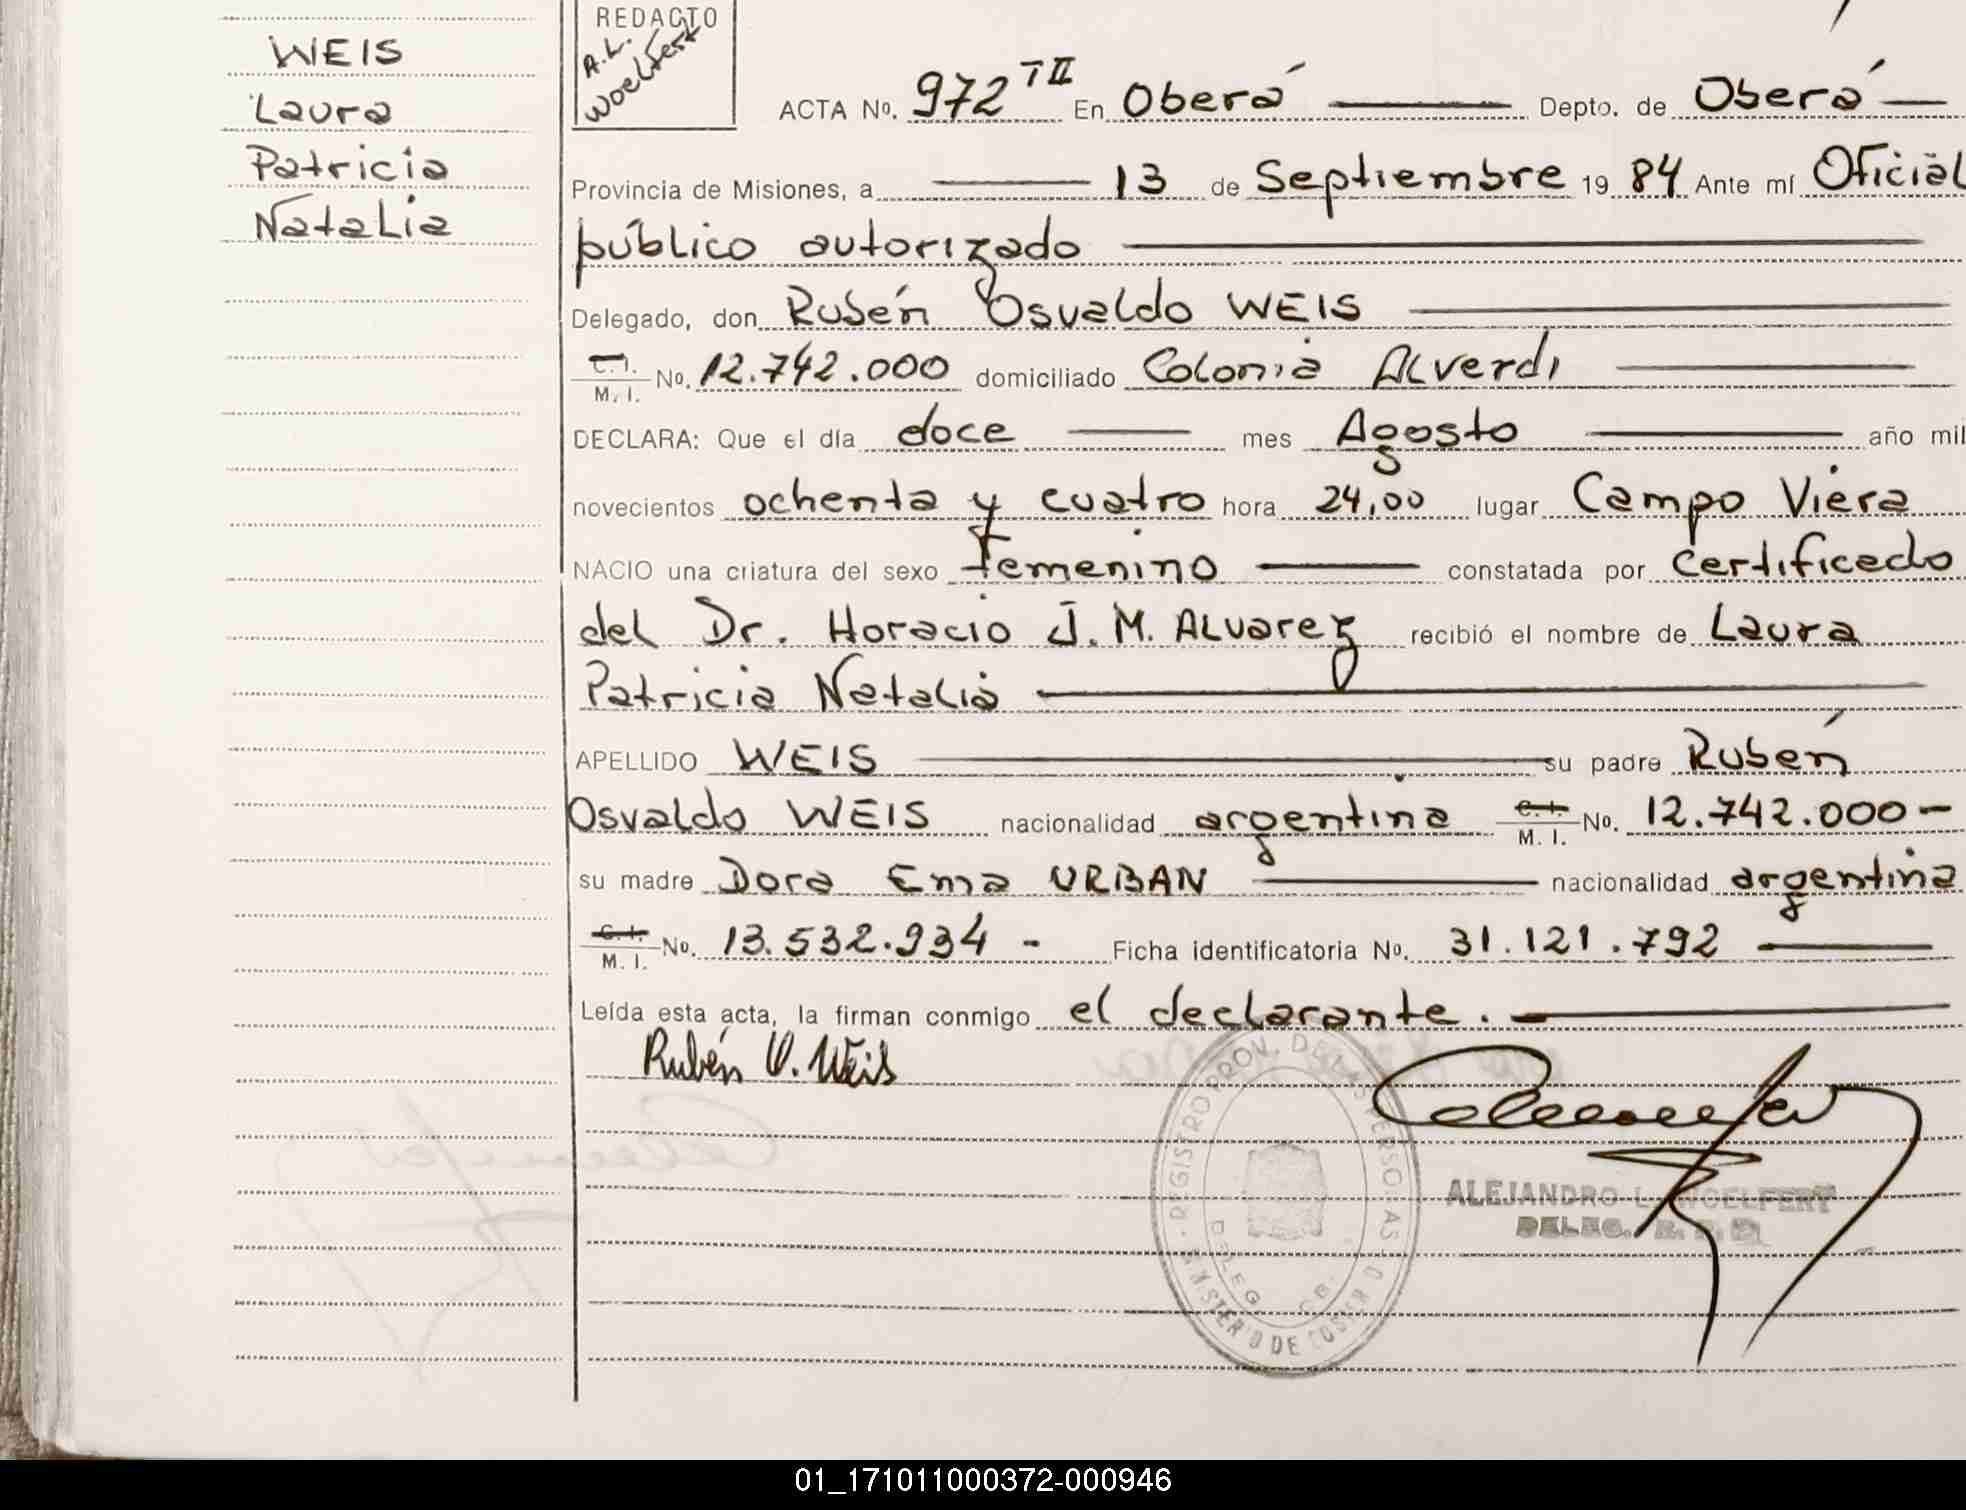 WEIS
Laura
Patricia
Natalia
REDACTO
A.L.
Woelfert
ACTA No. 972 TII En Oberá Depto. de Oberá
Provincia de Misiones, a 13 de Septiembre 19 84 Ante mí Oficial
público autorizado
Delegado, don Rubén Osvaldo WEIS
C.I. M.I. No. 12.742.000 domiciliado Colonia Alverdi
DECLARA: Que el día doce mes Agosto año mil
novecientos ochenta y cuatro hora 24,00 lugar Campo Viera
NACIO una criatura del sexo femenino constatada por certificado
del Dr. Horacio J. M. Alvarez recibió el nombre de Laura
Patricia Natalia
APELLIDO WEIS su padre Rubén
Osvaldo WEIS nacionalidad argentina C.I. M.I. No. 12.742.000-
su madre Dora Ema URBAN nacionalidad argentina
C.I. M.I. No. 13.532.934 - Ficha identificatoria No. 31.121.792
Leída esta acta, la firman conmigo el declarante.
Rubén O. Weis
REGISTRO PROV. DE LAS PERSONAS
MINISTERIO DE GOBIERNO
DELEG.
ALEJANDRO L. WOELFERT
DELEG. R. P. P.
01_171011000372-000946